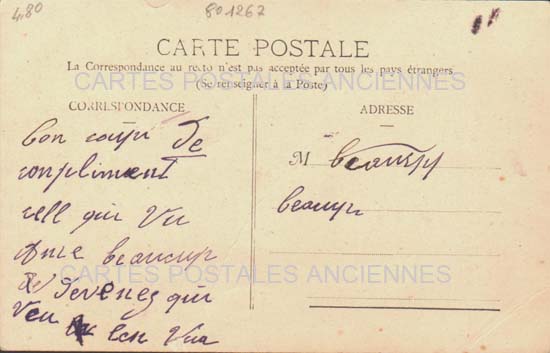 4,80
801267
CARTE POSTALE
La Correspondance au recto n'est pas acceptée par tous les pays étrangers
(Se renseigner à la Poste)
CARTES POSTALES ANCIENNES
CORRESPONDANCE
ADRESSE
bon coup de
conpliment
cell qui Vu
ome beaucup
de Devenez qui
Veu bon Vua
M beaucup
beaucup
CARTES POSTALES ANCIENNES